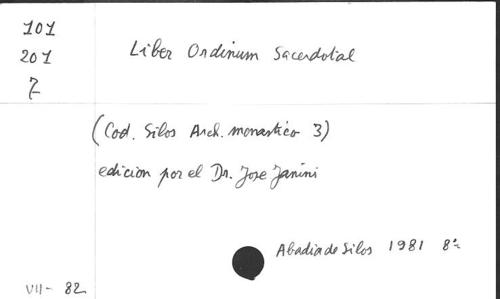 101
201
7
Liber Ordinum Sacerdotal
(Cod. Silos Arch. monastico 3)
edicion por el Dr. Jose Janini
Abadia de Silos 1981 8º
VII - 82